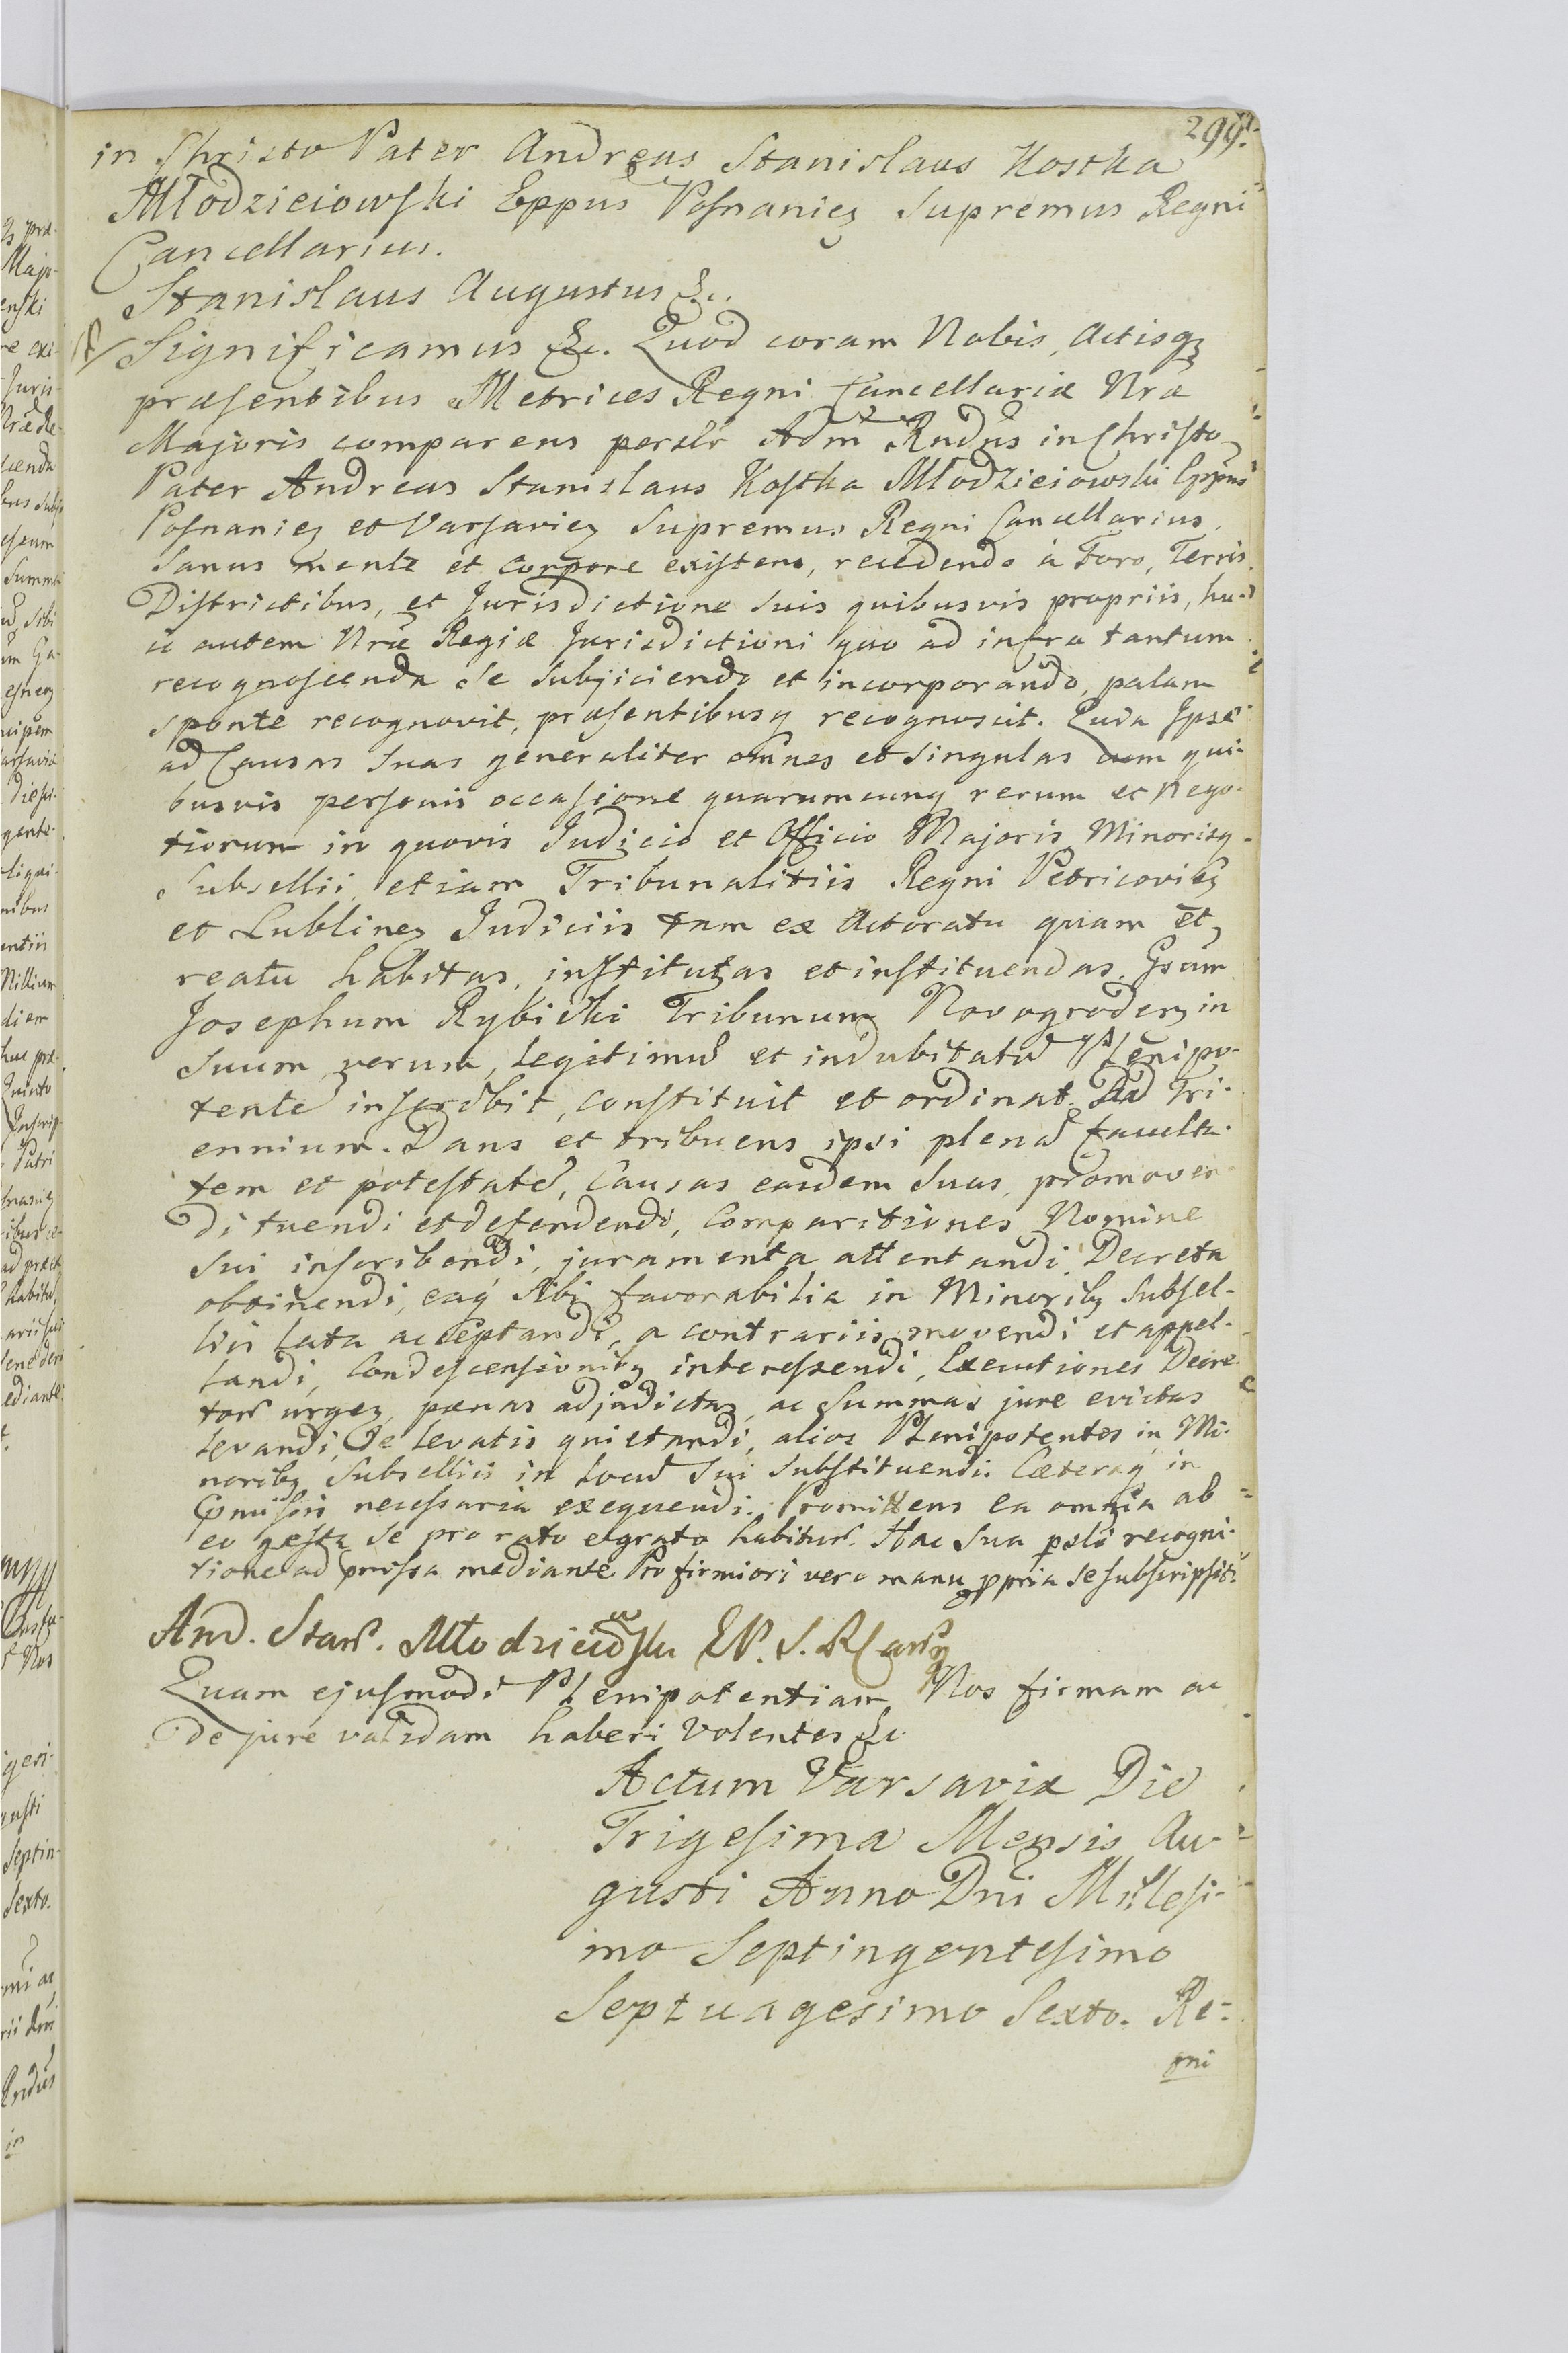 299.
in Christo Pater Andreas Stanislaus Kostka
Młodzieiowski Eppus Posnanieꝫ Supremus Regni
Cancellarius.
Stanislaus Augustus &c.
Significamus &c. Quod coram Nobis, Actisqꝫ
præsentibus Metrices Regni Cancellariæ Nræ
Majoris comparens persolr Adm Rndus in Christo
Pater Andreas Stanislaus Kostka Młodzieiowski Eppus
Posnanieꝫ et Varsavieꝫ Supremus Regni Cancellarius,
Sanus mente et corpore existens, recedendo à Foro, Terris
Districtibus, et Jurisdictione suis quibusvis propriis, hu-
ic autem Nræ Regiæ Jurisdictioni quo ad infra tantum
recognoscenda se subjiciendo et incorporando, palam
sponte recognovit, præsentibusq recognoscit. Quia Ipse
ad Causas suas generaliter omnes et singulas cum qui-
busvis personis occasione quarumcunq rerum et Nego-
tiorum in quovis Judicio et Officio Majoris Minorisq
Subsellii, etiam Tribunalitiis Regni Petricovieꝫ
et Lublineꝫ Judiciis tam ex Actoratu quam et
reatu habitas, institutas et instituendas. Gsum
Josephum Rybicki Tribunum Novogrodeꝫ in
suum verum, legitimu et indubitatu Plenipo-
tente inscribit, constituit et ordinat. Ad Tri-
ennium. Dans et tribuens ipsi plena faculta-
tem et potestate, Causas easdem suas, promoven
di tuendi et defendendi, Comparitiones Nomine
sui inscribendi, juramenta attentandi, Decreta
obtinendi, eaq sibi favorabilia in Minoribꝫ Subsel-
liis lata acceptandi, a contrariis movendi et appel-
landi, Condescensionibꝫ interessendi, Executiones Decre-
tor urgeꝫ, pænas adjudictas, ac Summas jure evictas
levandi, De levatis quietandi, alios Plenipotentes in Mi-
noribꝫ Subselliis in locu sui substituendi. Cæteraq in
Pmissis necessaria exequendi. Promittens ea omnia ab
eo gesta se pro rato et grato habitur. Hac sua psli recogni-
tione ad pmissa mediante. Pro firmiori vero manu ppria se subscripsit.
And. Stan. Młodzieiowski EP. S. R Canꝫ
Quam ejusmodi Plenipotentiam Nos firmam ac
de jure validam haberi volentes &c
Actum Varsaviæ Die
Trigesima Mensis Au-
gusti Anno Dni Millesi-
mo Septingentesimo
Septuagesimo Sexto. Re-
gni